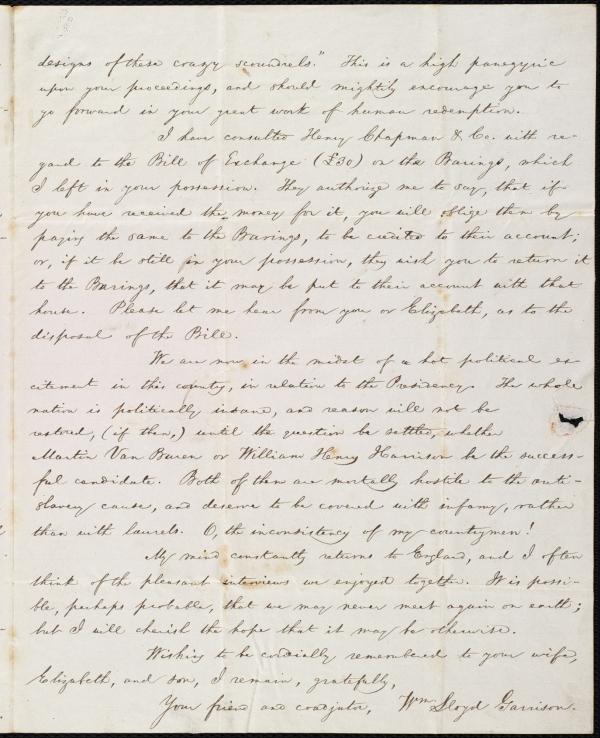 designs of these crazy scoundrels." This is a high panegyric
upon your proceedings, and should mightily encourage you to
go forward in your great work of human redemption.
I have consulted Henry Chapman & Co. with re-
gard to the Bill of Exchange (£30) on the Barings, which
I left in your possession. They authorize me to say, that if
you have received the money for it, you will oblige them by
paying the same to the Barings, to be credited to their account;
or, if it be still in your possession, they wish you to return it
to the Barings, that it may be put to their account with that
house. Please let me hear from you or Elizabeth, as to the
disposal of the Bill.
We are now in the midst of a hot political ex-
citement in this country, in relation to the Presidency. The whole
nation is politically insane, and reason will not be
restored, (if then,) until the question be settled, whether
Martin Van Buren or William Henry Harrison be the success-
ful candidate. Both of them are mortally hostile to the anti-
slavery cause, and deserve to be covered with infamy, rather
than with laurels. O, the inconsistency of my countrymen!
My mind constantly returns to England, and I often
think of the pleasant interviews we enjoyed together. It is possi-
ble, perhaps probable, that we may never meet again on earth;
but I will cherish the hope that it may be otherwise.
Wishing to be cordially remembered to your wife,
Elizabeth, and son, I remain, gratefully,
Your friend and coadjutor, Wm. Lloyd Garrison.